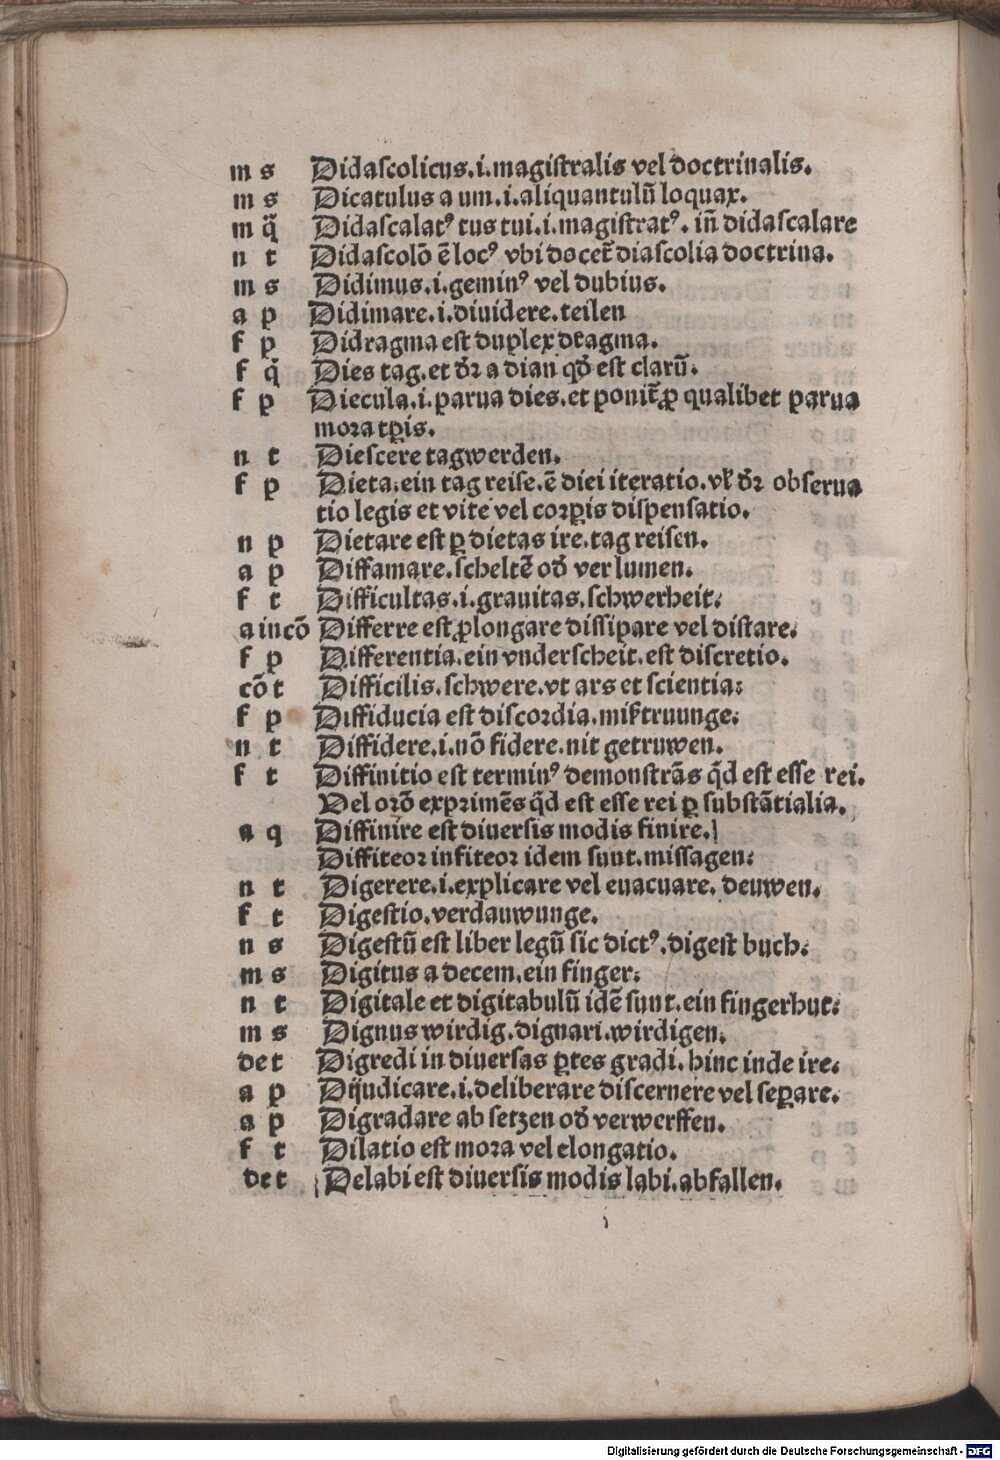 m s Didaſcolicus.i.magiſtralis vel doctrinalis.
m s Dicatulus a um.i.aliquantulū loquax.
m q̄ Didaſcalatꝰ tus tui.i.magiſtratꝰ. iñ didaſcalare
n t Didaſcolō ē locꝰ vbi docet̄ diaſcolia doctrina.
m s Didimus.i.geminꝰ vel dubius.
a p Didimare.i.diuidere.teilen
f p Didragma eſt duplex dragma.
f q̄ Dies tag.et dr̄ a dian qd̄ eſt clarū.
f p Diecula.i.parua dies.et ponit̄ ꝓ qualibet parua
mora tꝑis.
n t Dieſcere tagwerden.
f p Dieta.ein tag reiſe.ē diei iteratio.vl̓ dr̄ obſerua
tio legis et vite vel corꝑis diſpenſatio.
n p Dietare eſt ꝑ dietas ire.tag reiſen.
a p Diffamare.ſcheltē od̄ verlumen.
f t Difficultas.i.grauitas.ſchwerheit.
a incō Differre eſt ꝓlongare diſſipare vel diſtare.
f p Differentia.ein vnderſcheit.eſt diſcretio.
cō t Difficilis.ſchwere.vt ars et ſcientia:
f p Diffiducia eſt diſcordia.miſztruunge.
n t Diffidere.i.nō fidere.nit getruwen.
f t Diffinitio eſt terminꝰ demonſtrās q̄d eſt eſſe rei.
Vel orō exprimēs q̄d eſt eſſe rei ꝑ ſubſtātialia.
a q Diffinire eſt diuerſis modis finire.
Diffiteor infiteor idem ſunt.miſſagen:
n t Digerere.i.explicare vel euacuare. deuwen.
f t Digeſtio.verdauwunge.
n s Digeſtū eſt liber legū ſic dictꝰ.digeſt buch.
m s Digitus a decem.ein finger.
n t Digitale et digitabulū idē ſunt.ein fingerhut.
m s Dignus wirdig.dignari.wirdigen.
de t Digredi in diuerſas ꝑtes gradi.hinc inde ire.
a p Dijudicare.i.deliberare diſcernere vel ſeꝑare.
a p Digradare ab ſetzen od̄ verwerffen.
f t Dilatio eſt mora vel elongatio.
de t Delabi eſt diuerſis modis labi.abfallen.
Digitalisierung gefördert durch die Deutsche Forschungsgemeinschaft - DFG